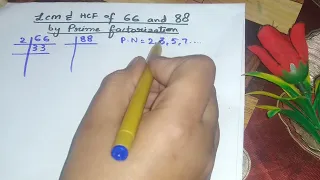 Lcm & HCF of 66 and 88
by Prime factorization
2 | 66 | 88 P.N = 2,3,5,7....
33